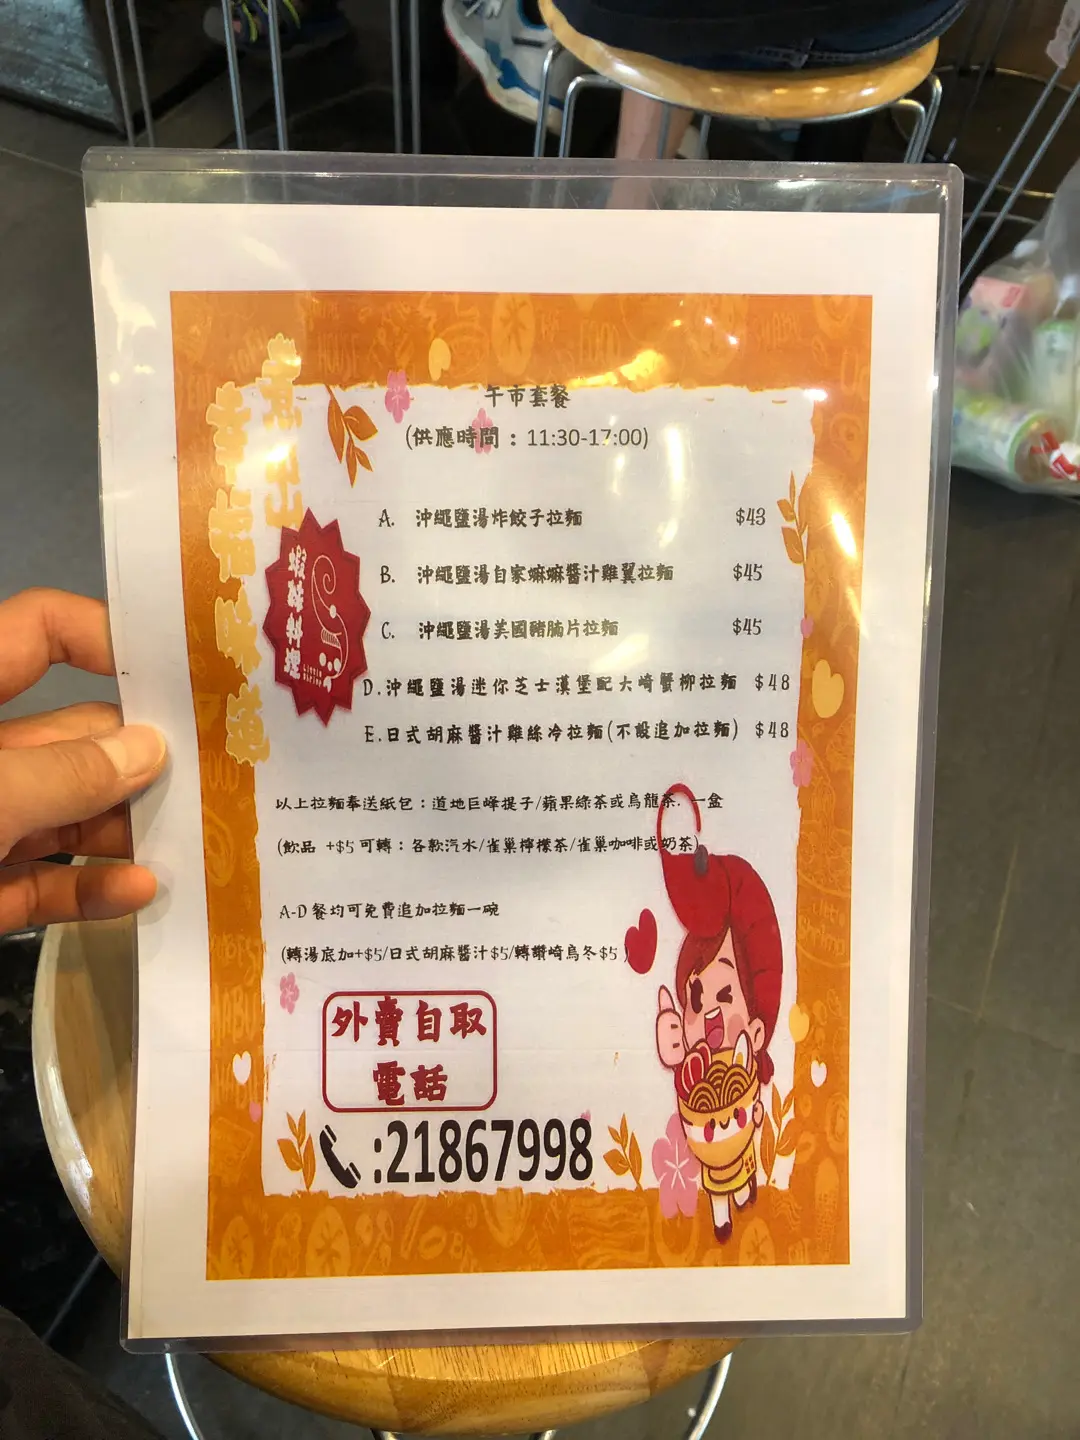 煮出
幸福味道
蝦酥料理
午市套餐
(供應時間：11:30-17:00)
A. 沖繩鹽湯炸餃子拉麵 $43
B. 沖繩鹽湯自家嫲嫲醬汁雞翼拉麵 $45
C. 沖繩鹽湯美國豬腩片拉麵 $45
D.沖繩鹽湯迷你芝士漢堡配大崎蟹柳拉麵 $48
E.日式胡麻醬汁雞絲冷拉麵(不設追加拉麵) $48
以上拉麵奉送紙包：道地巨峰提子/蘋果綠茶或烏龍茶. 一盒
(飲品 +$5可轉：各款汽水/雀巢檸檬茶/雀巢咖啡或奶茶)
A-D餐均可免費追加拉麵一碗
(轉湯底加+$5/日式胡麻醬汁$5/轉讚崎烏冬$5)
外賣自取
電話
:21867998